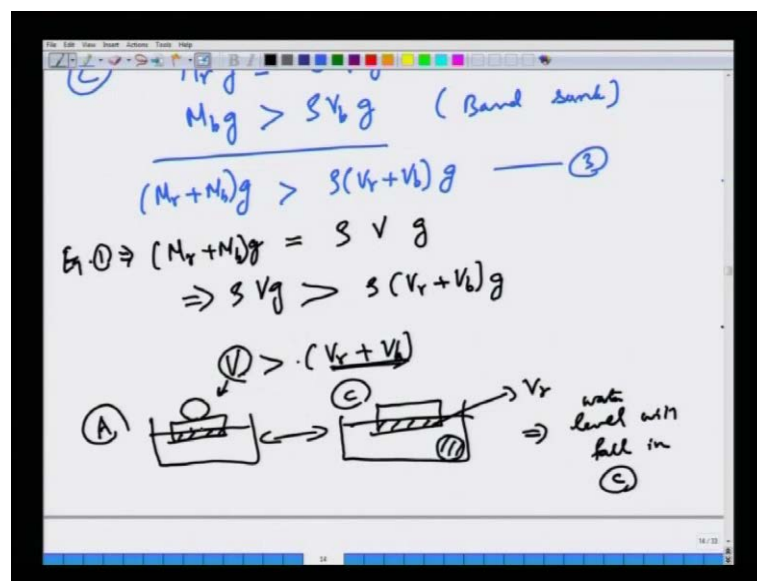 File Edit View Insert Actions Tools Help
M_b g > ρ V_b g (Band sunk)
(M_r + M_b) g > ρ (V_r + V_b) g ——— ③
Eq. ① ⇒ (M_r + M_b) g = ρ V g
⇒ ρ V g > ρ (V_r + V_b) g
V > (V_r + V_b)
A
C
V_r
⇒ water
level will
fall in
C
14 / 33
14